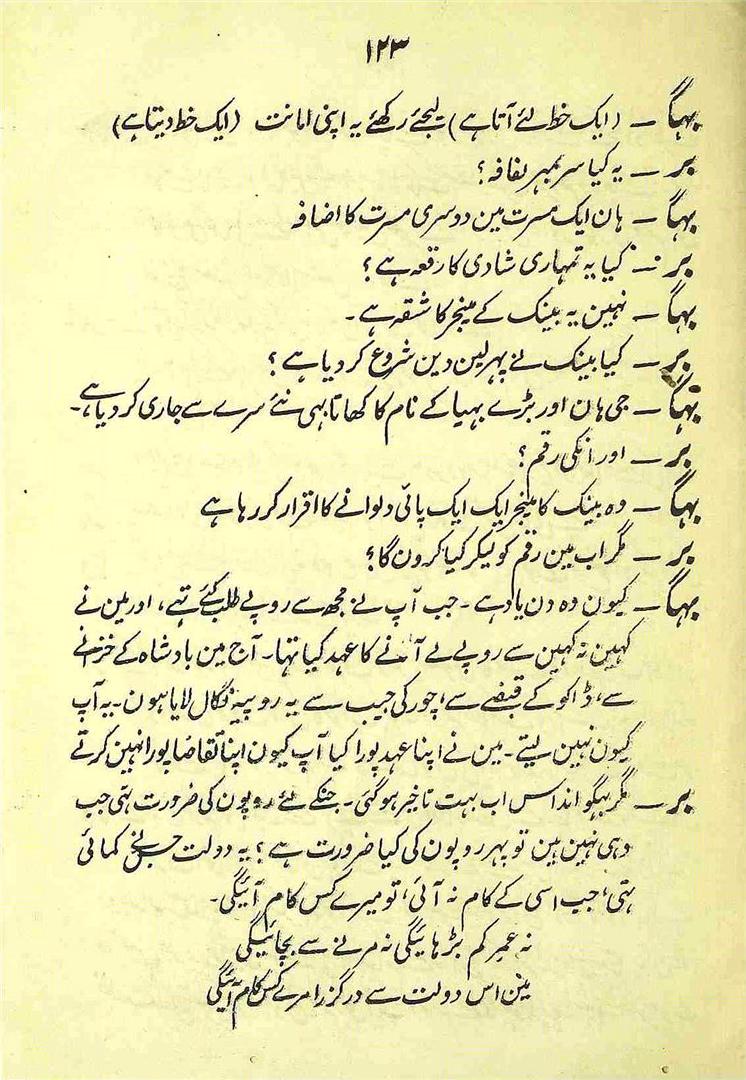 ۱۲۳
بہگا — (ایک خط لئے آتا ہے) لیجئے رکھئے یہ اپنی امانت (ایک خط دیتا ہے)
بر — یہ کیا سر بمہر لفافہ؟
بہگا — ہان ایک مسرت مین دوسری مسرت کا اضافہ
بر — کیا یہ تمہاری شادی کا رقعہ ہے؟
بہگا — نہین یہ بینک کے مینجر کا شقہ ہے۔
بر — کیا بینک نے پہر لین دین شروع کر دیا ہے؟
بہگا — جی ہان اور بڑے بہیا کے نام کا کھاتا بہی نئے سرے سے جاری کر دیا ہے۔
بر — اور انکی رقم؟
بہگا — وہ بینک کا مینجر ایک ایک پائی دلوانے کا اقرار کر رہا ہے
بر — مگر اب مین رقم کو لیکر کیا کرون گا؟
بہگا — کیون وہ دن یاد ہے۔ جب آپ نے مجھ سے روپے طلب کئے تہے، اور مین نے
کہین نہ کہین سے روپے لے آنے کا عہد کیا تہا۔ آج مین بادشاہ کے خزانے
سے، ڈاکو کے قبضے سے، چور کی جیب سے یہ روپیہ نکال لایا ہون۔ یہ آپ
کیون نہین لیتے۔ مین نے اپنا عہد پورا کیا آپ کیون اپنا تقاضا پورا نہین کرتے
بر — مگر بہگوانداس اب بہت تاخیر ہو گئی۔ جنکے لئے روپون کی ضرورت تہی جب
وہی نہین ہین تو پہر روپون کی کیا ضرورت ہے؟ یہ دولت جس نے کمائی
تہی، جب اسی کے کام نہ آئی، تو میرے کس کام آئیگی۔
نہ عمرِ کم بڑہائیگی نہ مرنے سے بچائیگی
مین اس دولت سے درگزرا مرے کس کام آئیگی